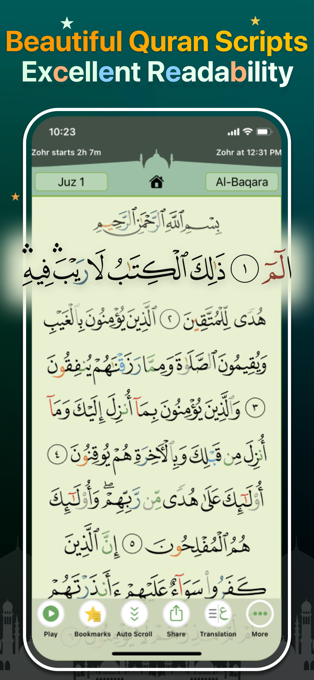 Beautiful Quran Scripts
Excellent Readability
10:23
Zohr starts 2h 7m
Zohr at 12:31 PM
Juz 1
Al-Baqara
بِسْمِ اللَّهِ الرَّحْمَٰنِ الرَّحِيمِ
الٓمٓ ۝١ ذَٰلِكَ الْكِتَٰبُ لَا رَيْبَ ۛ فِيهِ ۛ
هُدًى لِّلْمُتَّقِينَ ۝٢ الَّذِينَ يُؤْمِنُونَ بِالْغَيْبِ
وَيُقِيمُونَ الصَّلَوٰةَ وَمِمَّا رَزَقْنَٰهُمْ يُنفِقُونَ
۝٣ وَالَّذِينَ يُؤْمِنُونَ بِمَآ أُنزِلَ إِلَيْكَ وَمَآ
أُنزِلَ مِن قَبْلِكَ وَبِالْءَاخِرَةِ هُمْ يُوقِنُونَ ۝٤
أُو۟لَٰٓئِكَ عَلَىٰ هُدًى مِّن رَّبِّهِمْ ۖ وَأُو۟لَٰٓئِكَ
هُمُ الْمُفْلِحُونَ ۝٥ إِنَّ الَّذِينَ
كَفَرُوا۟ سَوَآءٌ عَلَيْهِمْ ءَأَنذَرْتَهُمْ
Play
Bookmarks
Auto Scroll
Share
Translation
More